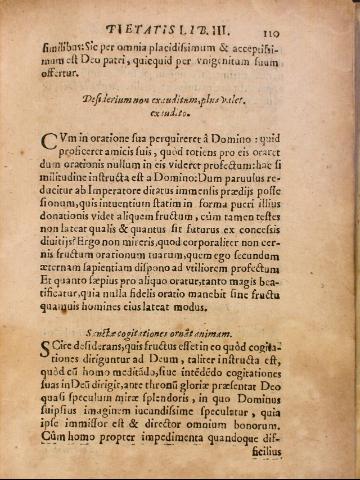 PIETATIS LIB. III. 110
similibus: Sic per omnia placidissimum & acceptissi-
mum est Deo patri, quicquid per vnigenitum suum
offertur.
Desiderium non exauditum, plus valet.
exaudito.
CVm in oratione sua perquireret â Domino: quid
proficeret amicis suis, quòd toties pro eis oraret
dum orationis nullum in eis videret profectum: hac si
militudine instructa est a Domino: Dum paruulus re-
ducitur ab Imperatore ditatus immensis prædijs posse
sionum, quis intuentium statim in forma pueri illius
donationis videt aliquem fructum, cùm tamen testes
non lateat qualis & quantus sit futurus ex concessis
diuitijs? Ergo non mireris, quod corporaliter non cer-
nis fructum orationum tuarum, quem ego secundum
æternam sapientiam dispono ad vtiliorem profectum
Et quanto sæpius pro aliquo oratur, tanto magis bea-
tificatur, quia nulla fidelis oratio manebit sine fructu
quamuis homines eius lateat modus.
Sanctæ cogitationes ornãt animam.
SCire desiderans, quis fructus esset in eo quòd cogita-
tiones diriguntur ad Deum, taliter instructa est,
quòd cũ homo meditãdo, siue intẽdẽdo cogitationes
suas in Deũ dirigit, ante thronũ gloriæ præsentat Deo
quasi speculum miræ splendoris, in quo Dominus
suipsius imaginem iucundissime speculatur, quia
ipse immissor est & director omnium bonorum.
Cûm homo propter impedimenta quandoque dif-
ficilius